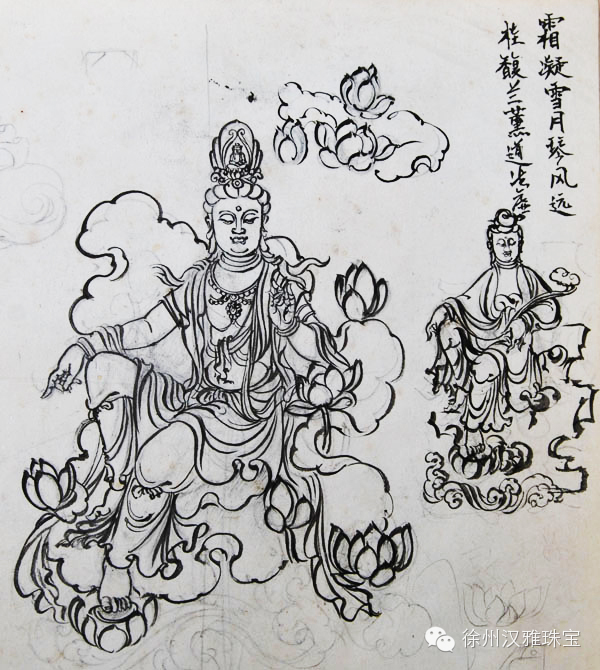 霜凝雪月琴风远
桂馥兰薰道
徐州汉雅珠宝